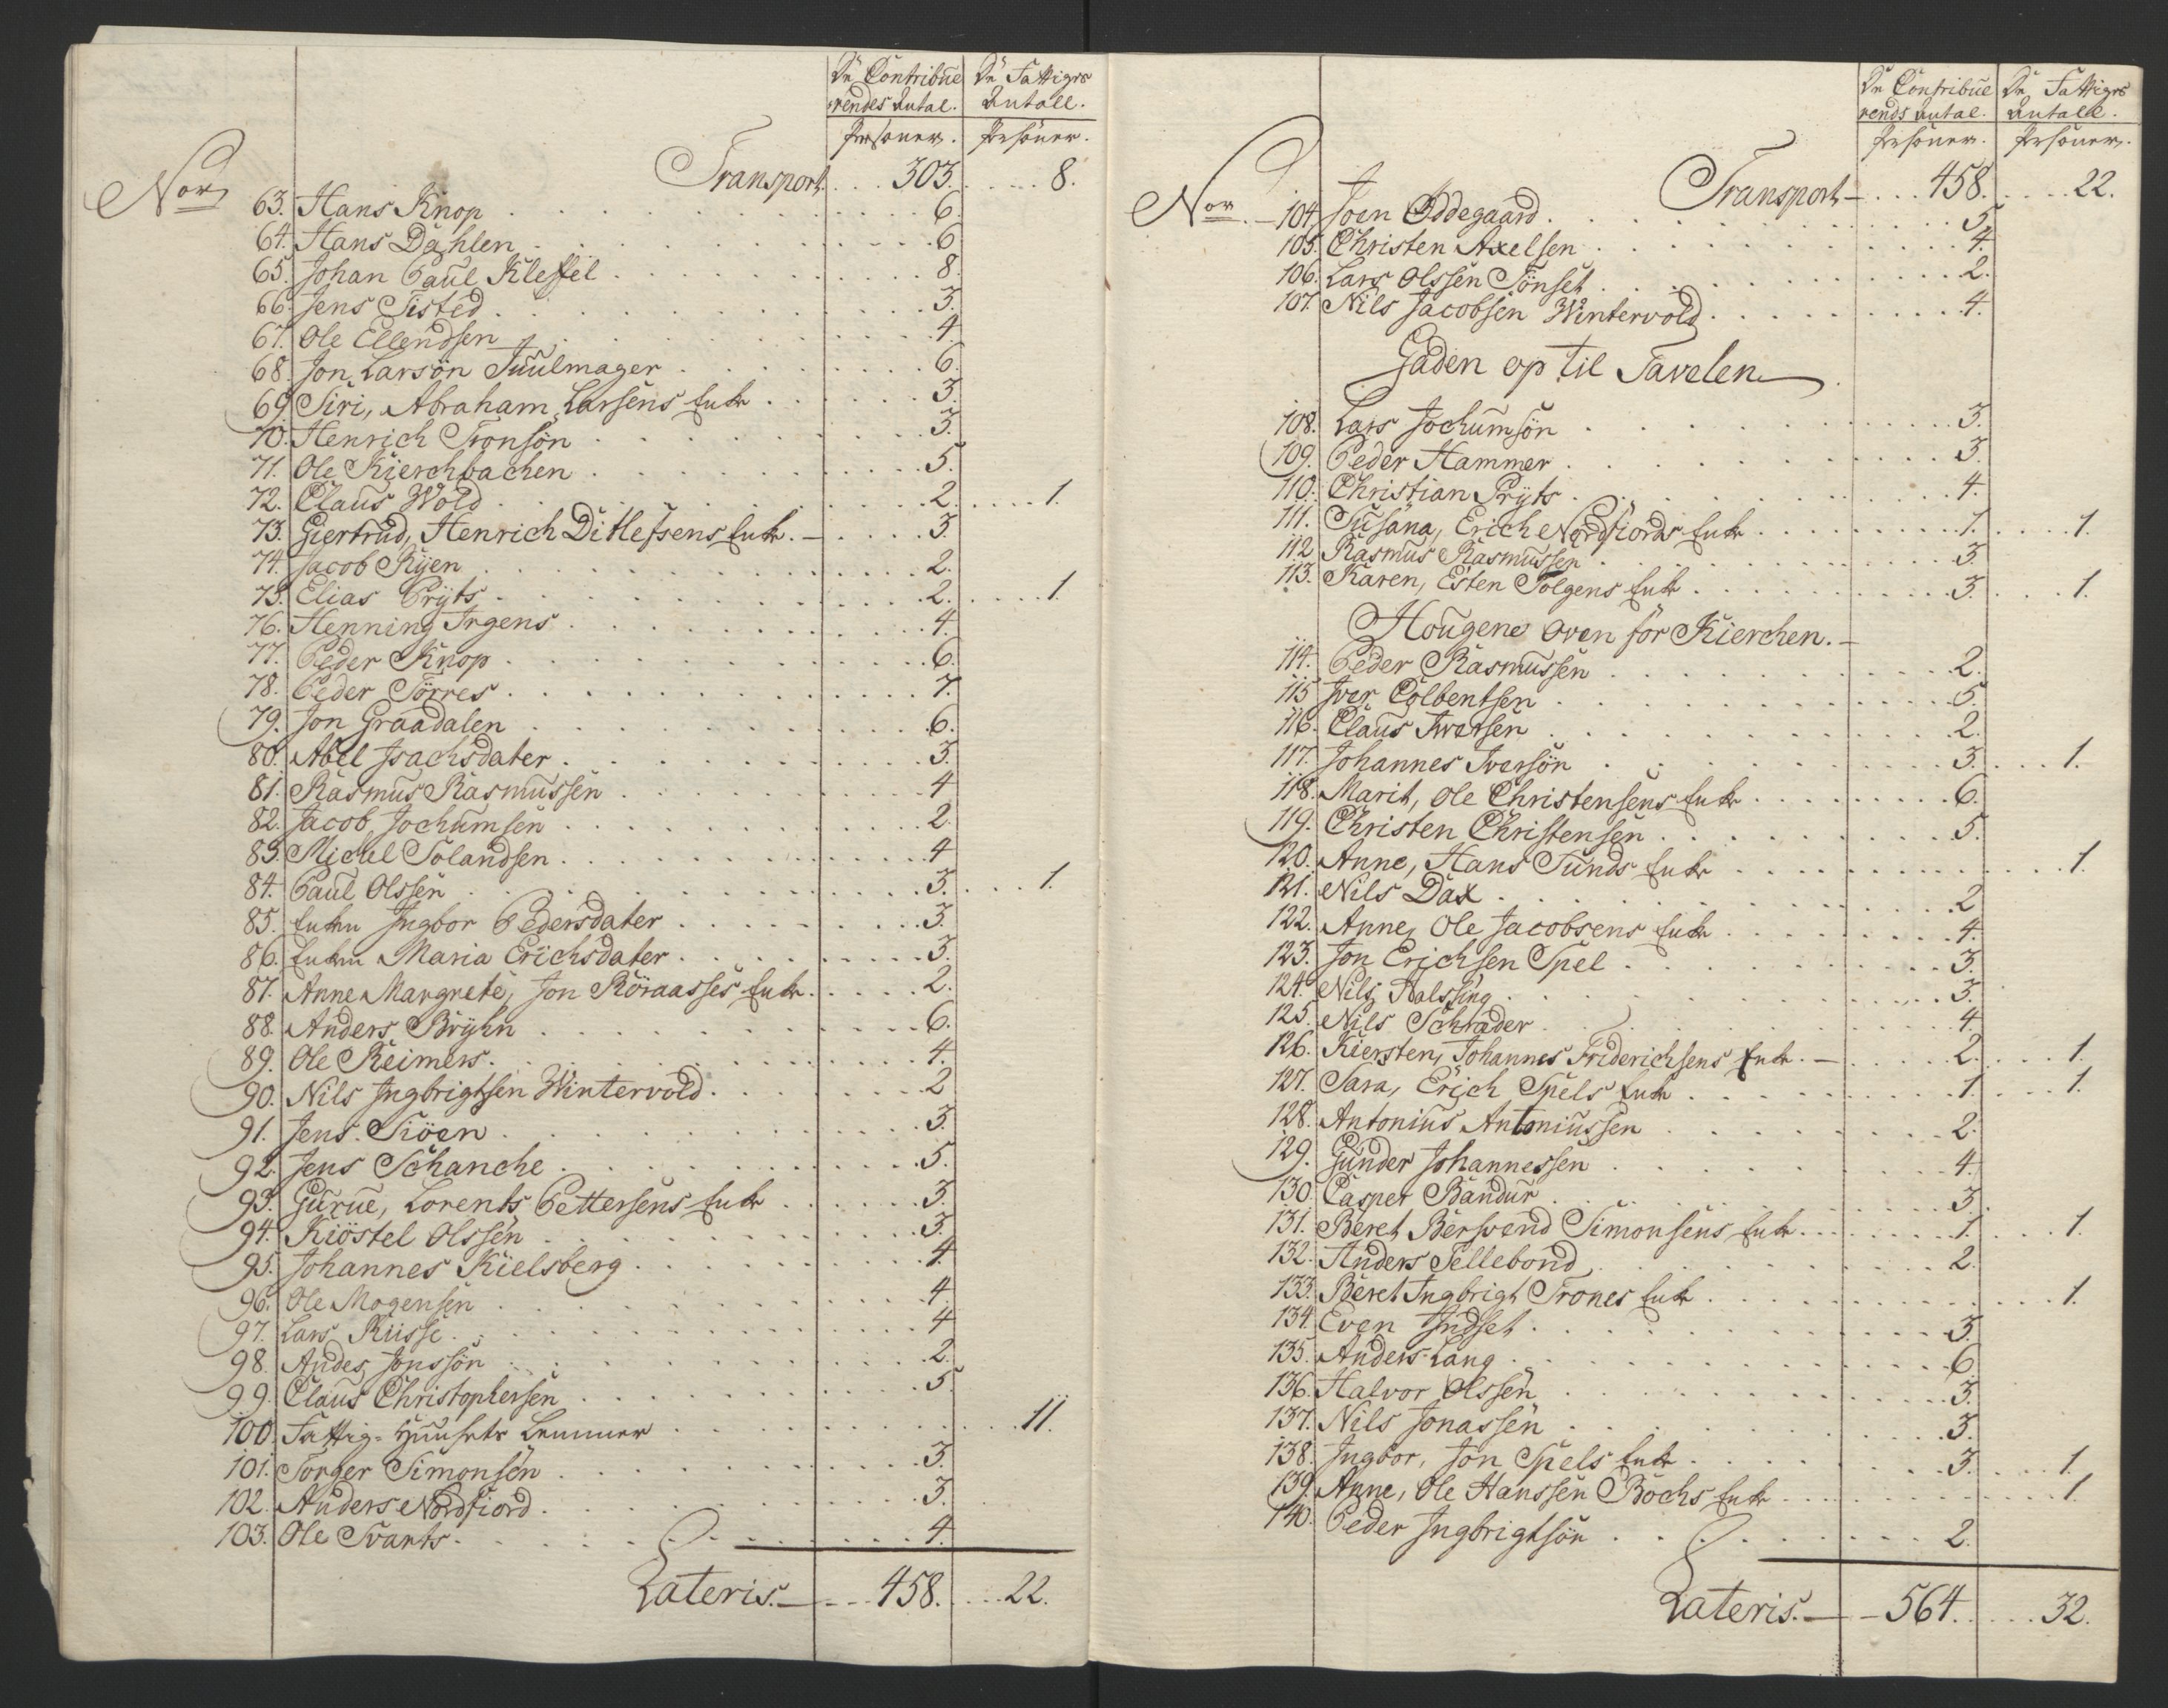 De Contribue De Fattiges
rendes Antal. Antall.
Personer. Persöner.
Transport. . . 303. . . . . 8.
Nor
63. Hans Knop . . . 6.
64. Hans Dahlen . . . 6
65. Johan Paul Kleffel . . . 8.
66. Jens Sisted . . . 3.
67. Ole Ellendsen . . . 4.
68. Jon Larsön Juulmager . . . 6.
69. Siri, Abraham Larsens Enke . . . 3.
70. Henrich Tronsön . . . 3.
71. Ole Kierchbachen . . . 5.
72. Claus Wold . . . 2. . . . 1.
73. Giertrud, Henrich Ditlefsens Enke. – . . . 3.
74. Jacob Ryen . . . 2.
75. Elias Prÿts . . . 2. . . . 1.
76. Henning Irgens . . . 4.
77. Peder Knop . . . 6.
78. Peder Törres . . . 7.
79. Jon Graadalen . . . 6.
80. Abel Isachsdater . . . 3.
81. Rasmus Rasmussen . . . 4
82. Jacob Jochumsen . . . 2.
83. Michel Tolandsen . . . 4
84. Paul Olssen . . . 3. . . . 1.
85. Enken Ingbor Pedersdater . . . 3.
86. Enken Maria Erichsdater . . . 3.
87. Anne Margrete, Jon Röraasses Enke . . . 2.
88. Anders Brÿhn . . . 6.
89. Ole Reimers . . . 4.
90. Nils Ingbrigtsen Wintervold . . . 2
91. Jens Siöen . . . 3.
92. Jens Schanche . . . 5.
93. Gurue, Lorents Pettersens Enke . . . 3.
94. Kiöstel Olssen . . . 3.
95. Johannes Kielsberg . . . 4.
96. Ole Mogensen . . . 4.
97. Lars Riisse . . . 4
98. Andes Jonssön . . . 2.
99. Claus Christophersen . . . 5.
100. Fattig-Huusets Lemmer . . . 11.
101. Torger Simonsen . . . 3.
102. Anders Nordfiord . . . 3.
103. Ole Svarts . . . 4.
Lateris. – . . . 458. . . . 22.
De Contribue De Fattiges
rends Antal. Antall.
Persöner. Persöner.
Transport – . . . 458. . . . 22.
Nor
104. Joen Oddegaard . . . 5
105. Christen Axelsen . . . 4.
106. Lars Olssen Tönset . . . 2.
107. Nils Jacobsen Wintervold . . . 4.
Gaden op til Tavelen
108. Lars Jochumsön . . . 3.
109. Peder Hammer . . . 3.
110. Christian Prÿts . . . 4.
111. Susana, Erich Nordfiords Enke . . . 1. . . . 1.
112. Rasmus Rasmussen . . . 3.
113. Karen, Esten Tolgens Enke . . . 3. . . . 1.
Hougene oven for Kierchen. –
114. Peder Rasmussen . . . 2.
115 Iver Colbentsen . . . 5.
116. Claus Iversen . . . 2.
117. Johannes Iversön . . . 3. . . . 1.
118. Marit, Ole Christensens Enke . . . 6.
119. Christen Christensen . . . 5.
120. Anne, Hans Sunds Enke . . . 1.
121. Nils Dax . . . 2
122. Anne, Ole Jacobsens Enke . . . 4.
123. Jon Erichsen Spel . . . 3.
124. Nils Aalssing . . . 3.
125. Nils Schrader . . . 4.
126. Kiersten, Johannes Friderichsens Enke. – . . . 2. . . . 1.
127. Sara, Erich Spels Enke . . . 1. . . . 1.
128. Antonius Antoniussen . . . 2.
129. Gunder Johannessen . . . 4.
130. Casper Bandur . . . 3.
131. Beret Berswend Simonsens Enke . . . 1. . . . 1.
132. Anders Tellebond . . . 2.
133. Beret Ingbrigt Trones Enke . . . 1.
134. Even Indset . . . 3.
135. Anders Lang . . . 6
136. Halvor Olssen . . . 3.
137. Nils Jonassen . . . 3.
138. Ingbor, Jon Spels Enke . . . 3. . . . 1.
139. Anne, Ole Hanssen Bochs Enke . . . 1.
140. Peder Ingbrigtsön . . . 2.
Lateris. – 564. . . . 32.